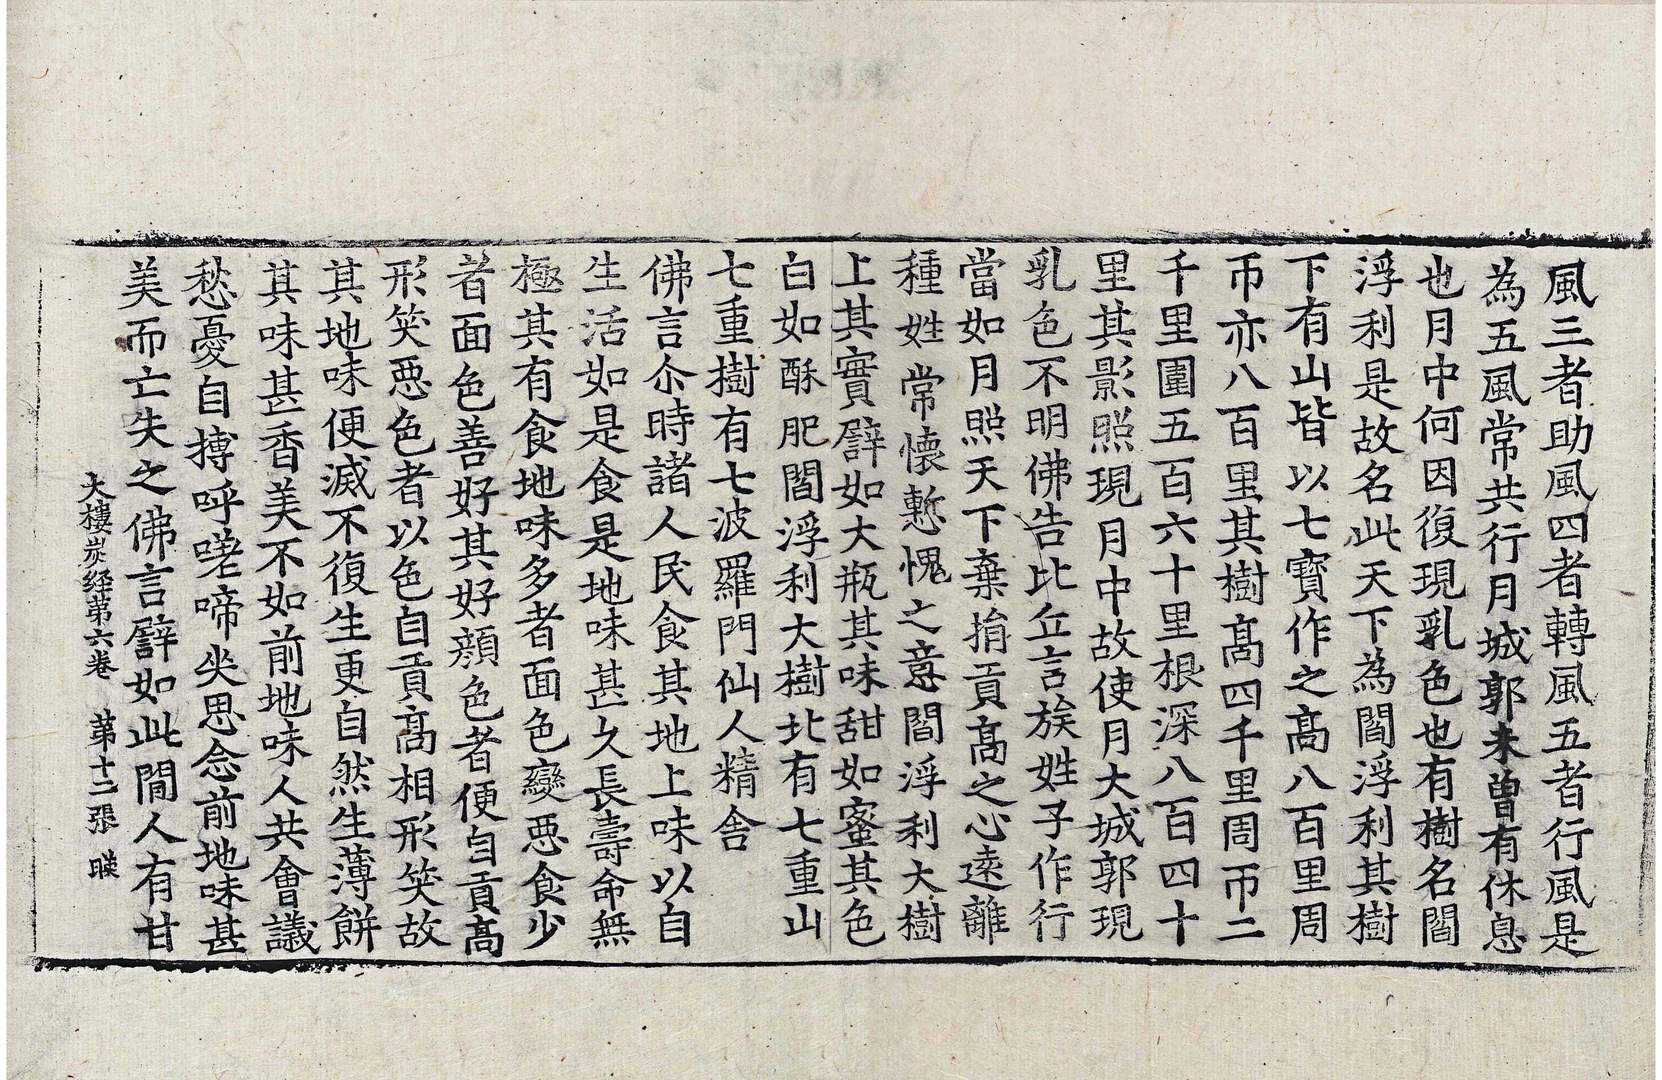 風三者助風四者轉風五者行風是
為五風常共行月城郭未曾有休息
也月中何因復現乳色也有樹名閻
浮利是故名此天下為閻浮利其樹
下有山皆以七寶作之髙八百里周
帀亦八百里其樹髙四千里周帀二
千里圍五百六十里根深八百四十
里其影照現月中故使月大城郭現
乳色不明佛告比丘言族姓子作行
當如月照天下棄捐貢髙之心遠離
種姓常懷慙愧之意閻浮利大樹
上其實譬如大瓶其味甜如蜜其色
白如酥肥閻浮利大樹北有七重山
七重樹有七波羅門仙人精舍
佛言尒時諸人民食其地上味以自
生活如是食是地味甚久長壽命無
極其有食地味多者面色變惡食少
者面色善好其好顔色者便自貢髙
形笑惡色者以色自貢髙相形笑故
其地味便滅不復生更自然生薄餅
其味甚香美不如前地味人共會議
愁憂自搏呼嗟啼坐思念前地味甚
美而亡失之佛言譬如此閒人有甘
大樓炭经苐六卷 苐十二張